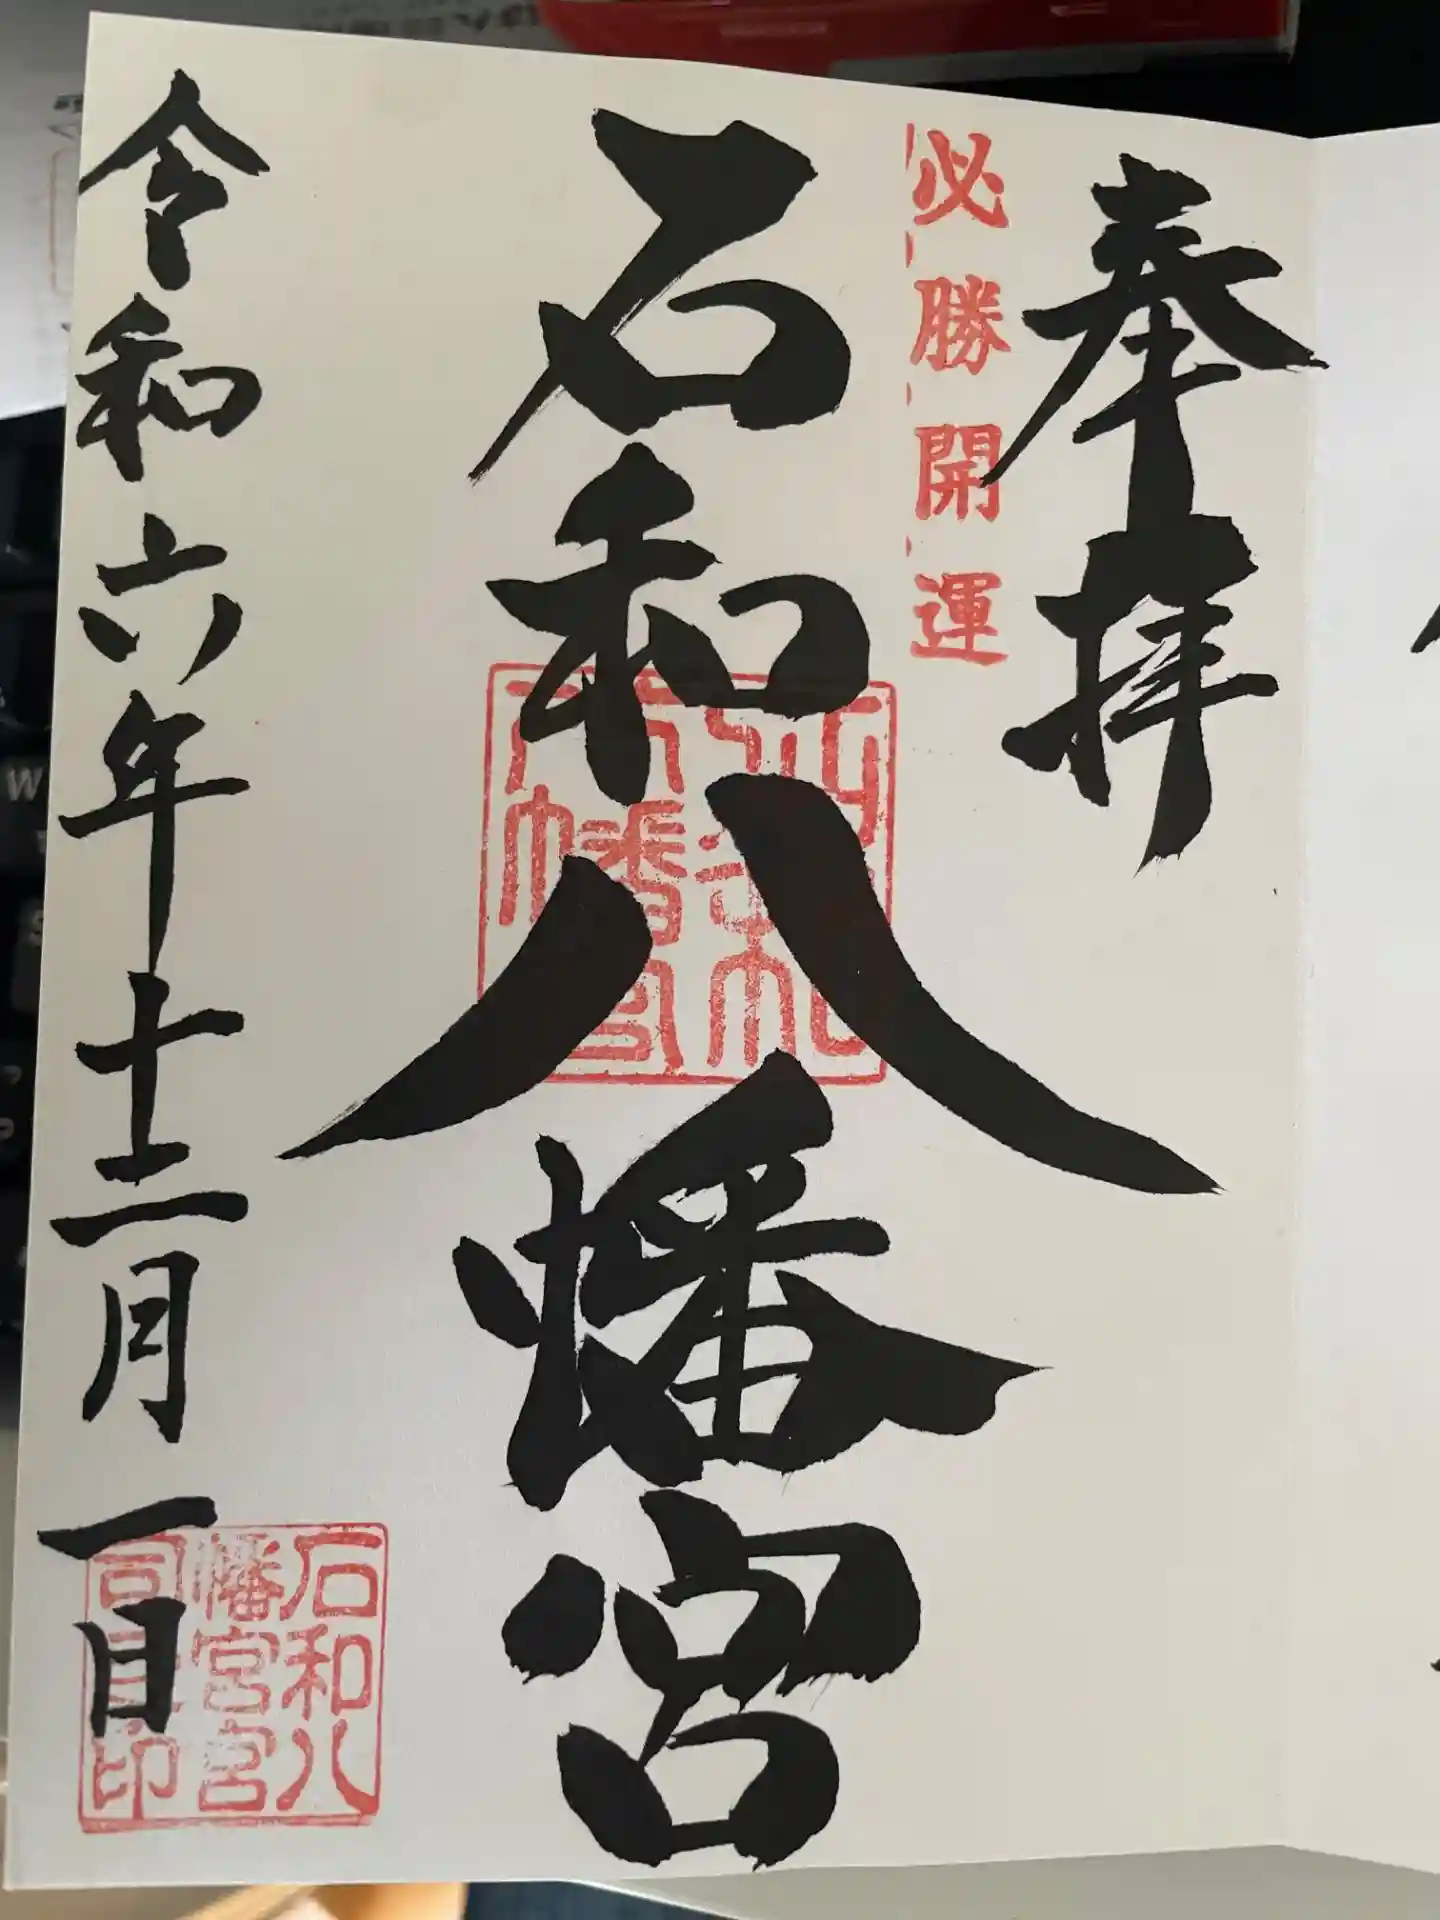 奉拝
必勝開運
石和八幡宮
令和六年十二月一日
石和八
幡宮宮
司之印